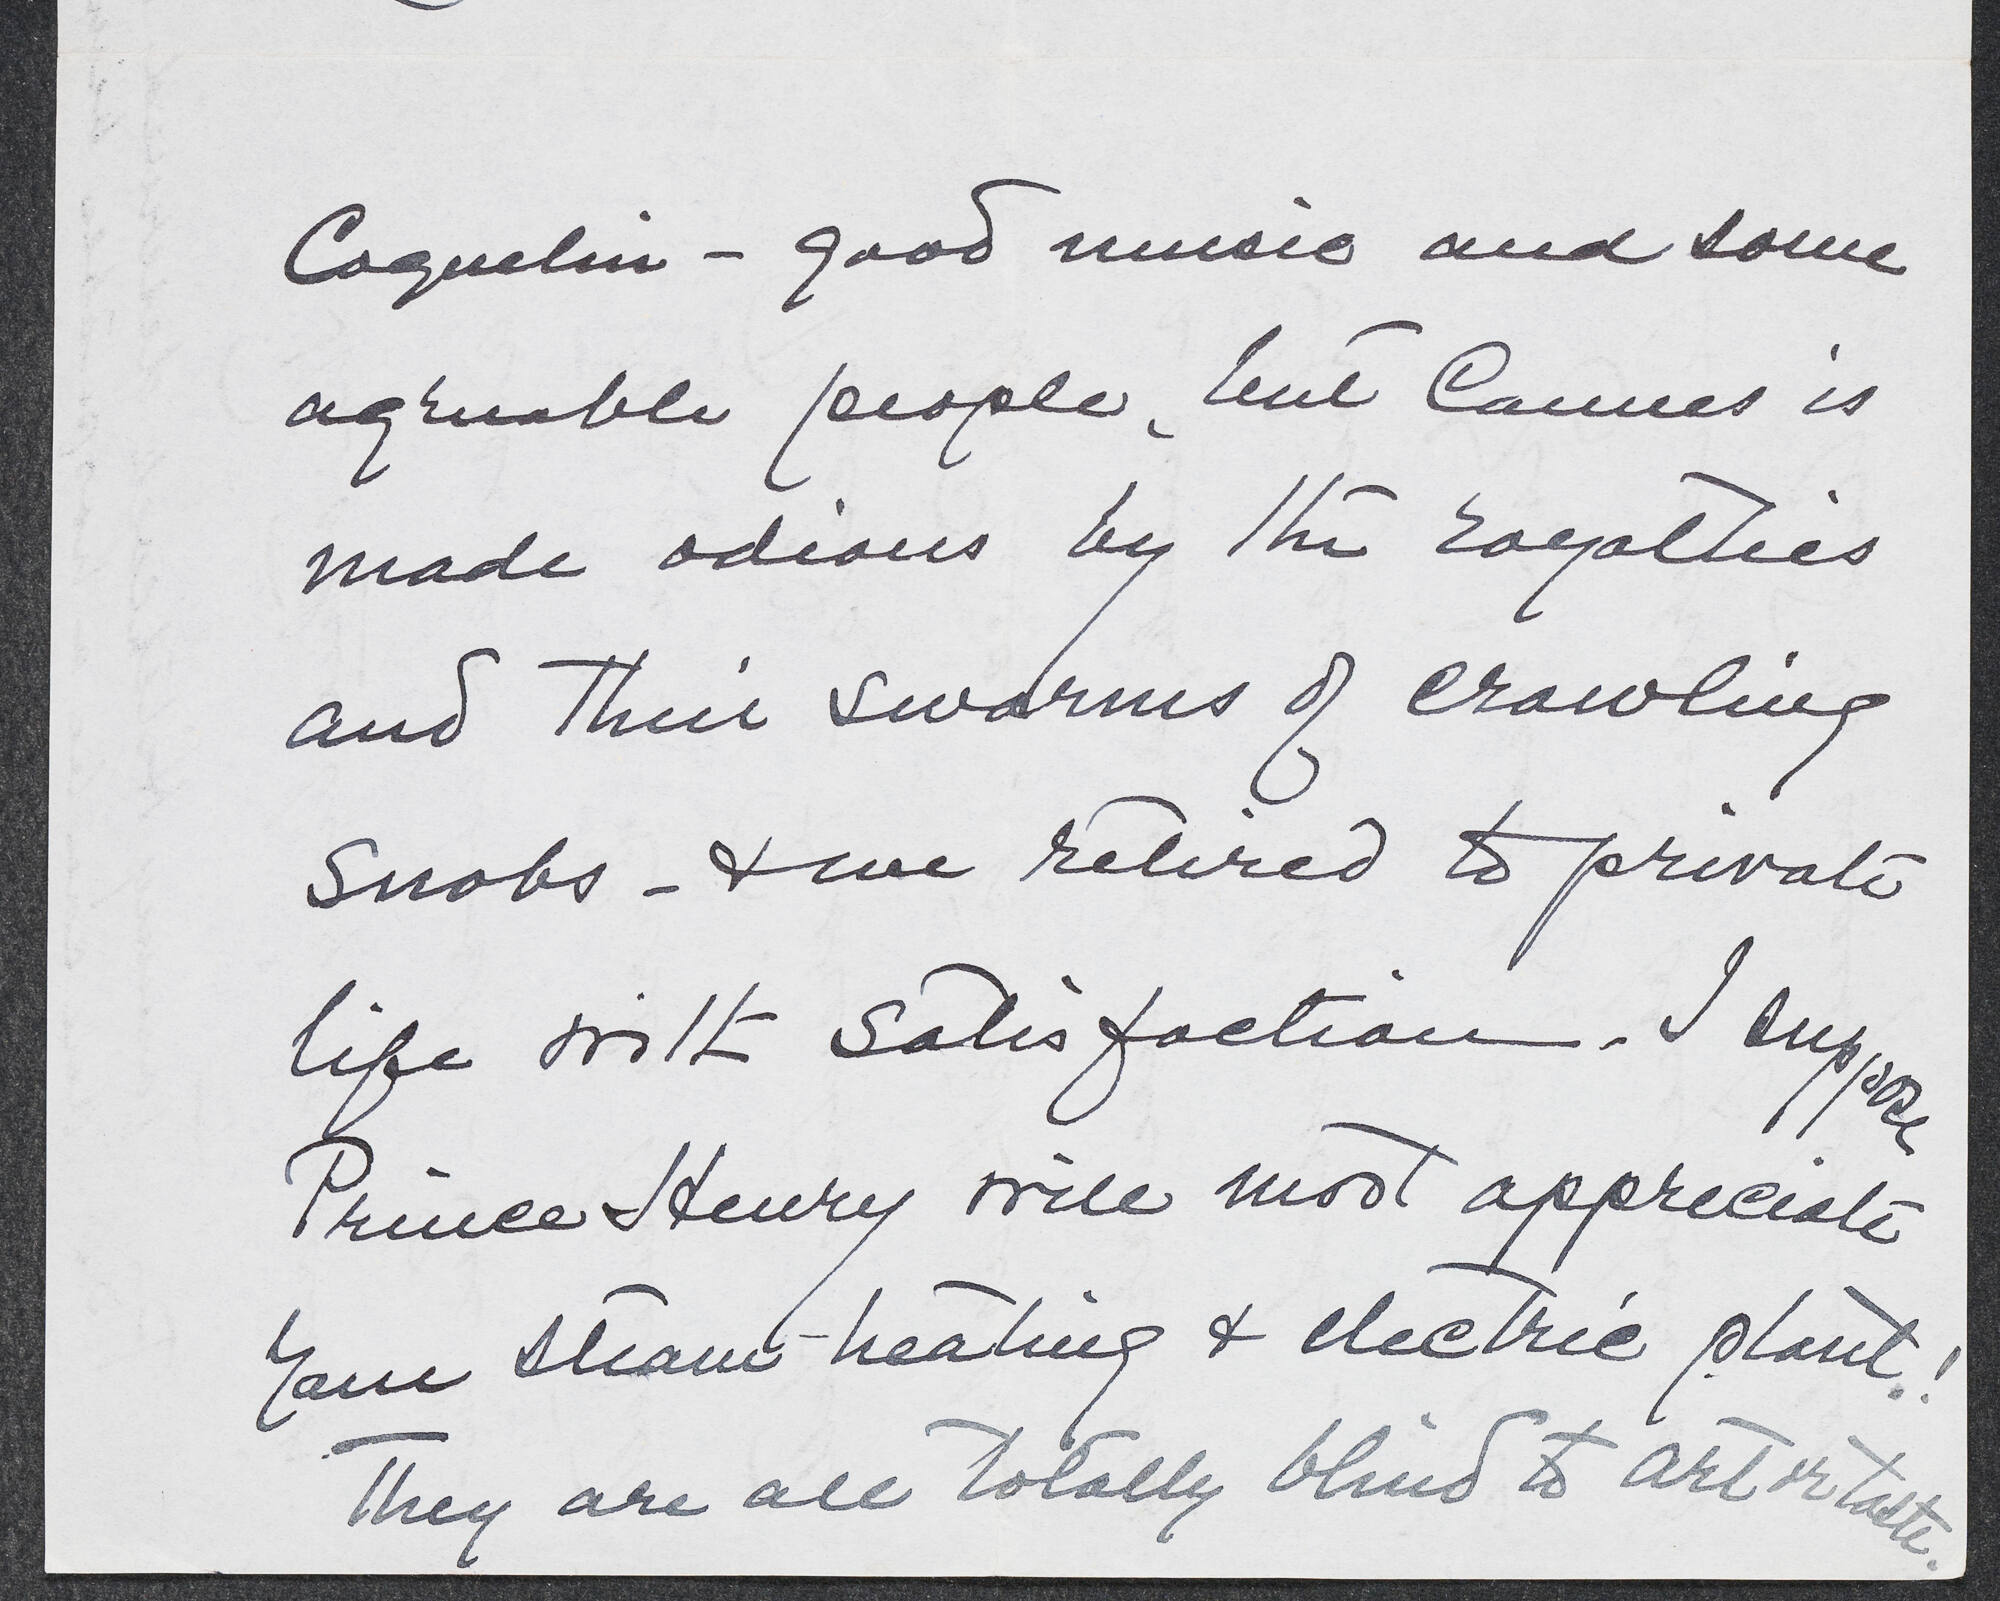 Coquelin - good music and some
agreeable people, but Cannes is
made odious by the royalties
and their swarms of crawling
snobs - & we retired to private
life with satisfaction. I suppose
Prince Henry will most appreciate
your steam-heating & electric plant.!
They are all totally blind to art or taste.